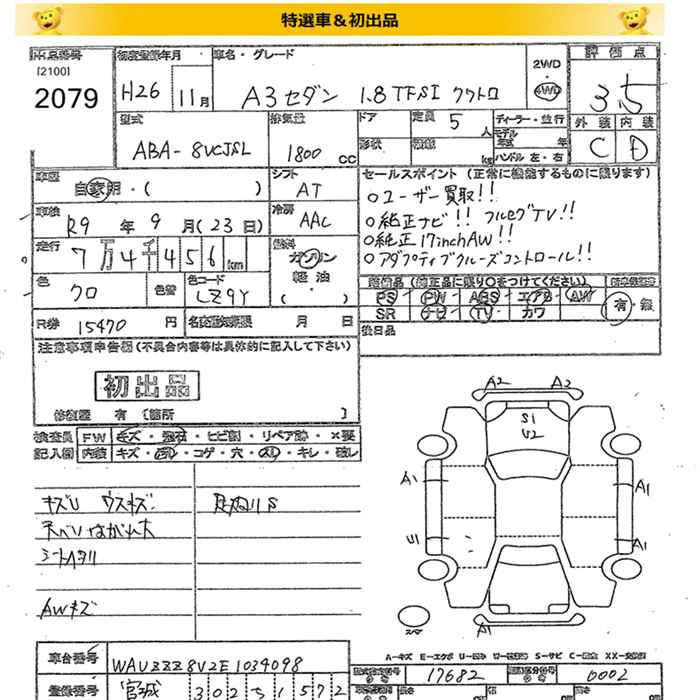 特選車&初出品
出品番号
[2100]
2079
初度登録年月
H26 11月
車名・グレード
A3セダン 1.8 TFSI クワトロ
2WD
4WD
評価点
3.5
外装 内装
C D
型式
ABA-8VCJSL
排気量
1800 CC
ドア
定員 5 人
形状
積載 kg
ディーラー・並行
モデル
年式 年
ハンドル 左・右
車歴
自家用・( )
シフト
AT
セールスポイント(正常に機能するものに限ります)
○ユーザー買取!!
○純正ナビ!! フルセグTV!!
○純正17inchAW!!
○アダプティブクルーズコントロール!!
車検
R9 年 9 月(23日)
冷房
AAC
走行
7万4千456km
燃料
ガソリン
軽油
( ・ )
色
クロ
色替
色コード
LZ9Y
装備品(純正品に限り○をつけてください)
PS PW ABS エアB AW
SR ナビ TV カワ
有・無
R券 15470 円
名変期限 月 日
後日品
注意事項申告欄(不具合内容等は具体的に記入して下さい)
初出品
修復歴 有 [箇所 ]
検査員 FW キズ・飛石・ヒビ割・リペア跡・×要
記入欄 内装 キズ・汚レ・コゲ・穴・スレ・キレ・破レ
キズU ウスキズ
天ベリながれ大
シートヘタリ
AWキズ
A2 A2
S1
U2
A1 A1
U1 A1
A1
スペア
A-キズ E-エクボ U-凹み W-補修跡 S-サビ C-腐食 XX-交換済
車台番号
WAUZZZ8V2E1034098
型式指定番号 17682
類別区分番号 0002
登録番号
宮城 302 ち 1572